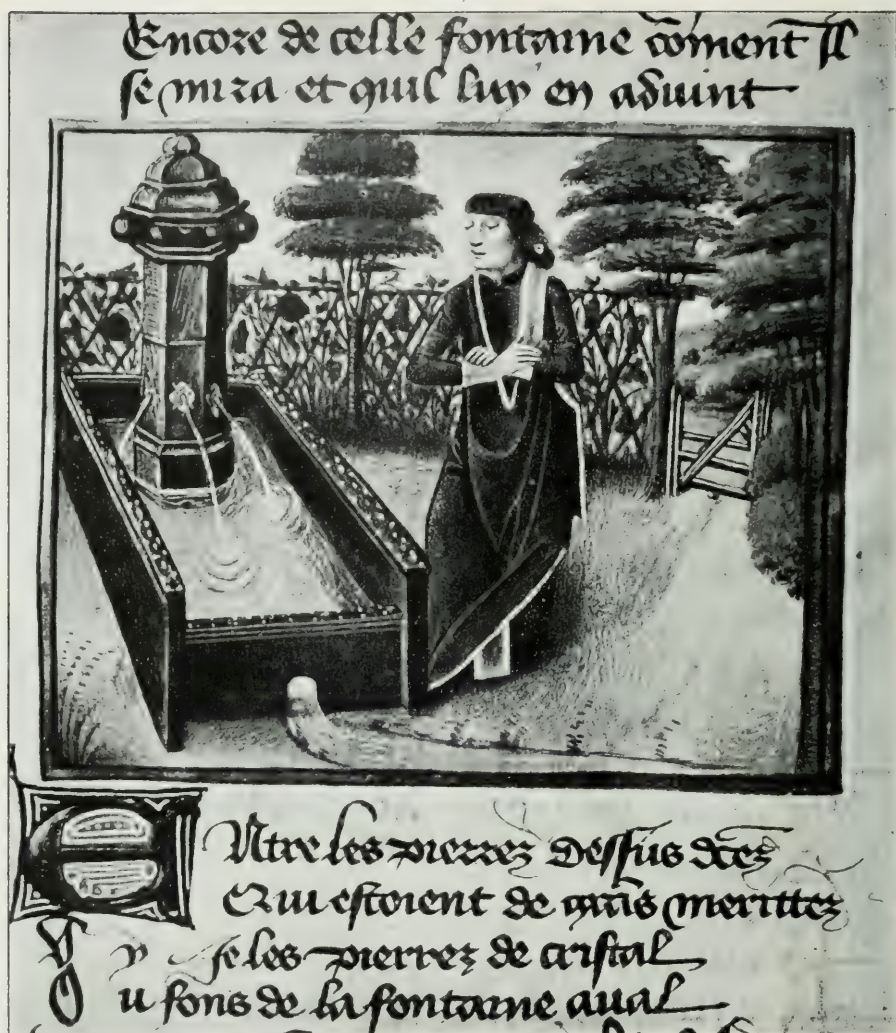 Encore de celle fontaine coment Il
se mira et quil luy en aduint
Entre les pierrez dessus dcez
Qui estoient de grãs merittez
Vy je les pierrez de cristal
Ou fons de la fontaine aual